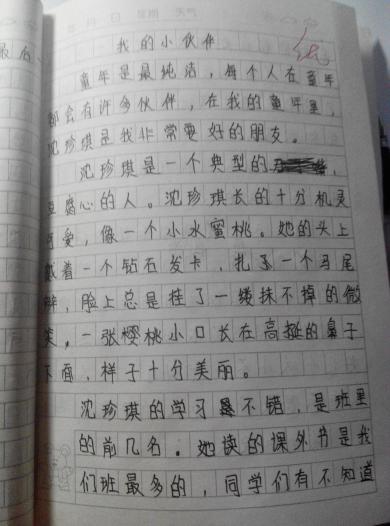 月 日 星期 天气
最后
我的小伙伴
童年是最纯洁，每个人在童年
都会有许多伙伴，在我的童年里，
沈珍琪是我非常要好的朋友。
沈珍琪是一个典型的
豆腐心的人。沈珍琪长的十分机灵
可爱，像一个小水蜜桃。她的头上
戴着一个钻石发卡，扎了一个马尾
辫，脸上总是挂了一缕抹不掉的微
笑。一张樱桃小口长在高挺的鼻子
下面，样子十分美丽。
沈珍琪的学习是不错，是班里
的前几名。她读的课外书是我
们班最多的，同学们有不知道